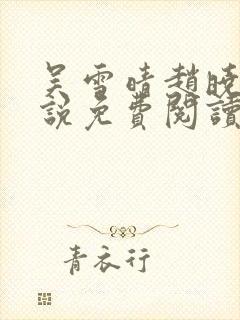 吴雪晴趙晓
說免費閱讀
青衣行